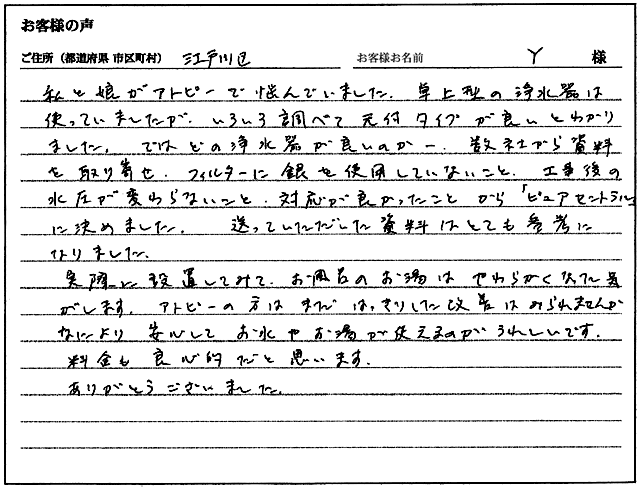 お客様の声
ご住所（都道府県 市区町村） 江戸川区 お客様お名前 Y 様
私と娘がアトピーで悩んでいました。卓上型の浄水器は
使っていましたが、いろいろ調べて元付タイプが良いとわかり
ました。ではどの浄水器が良いのかー。数社から資料
を取り寄せ、フィルターに銀を使用していないこと、工事後の
水圧が変わらないこと、対応が良かったことから「ピュアセントラル」
に決めました。送っていただいた資料はとても参考に
なりました。
実際に設置してみて、お風呂のお湯はやわらかくなった気
がします。アトピーの方はまだはっきりした改善はみられませんが
なにより安心してお水やお湯が使えるのがうれしいです。
料金も良心的だと思います。
ありがとうございました。